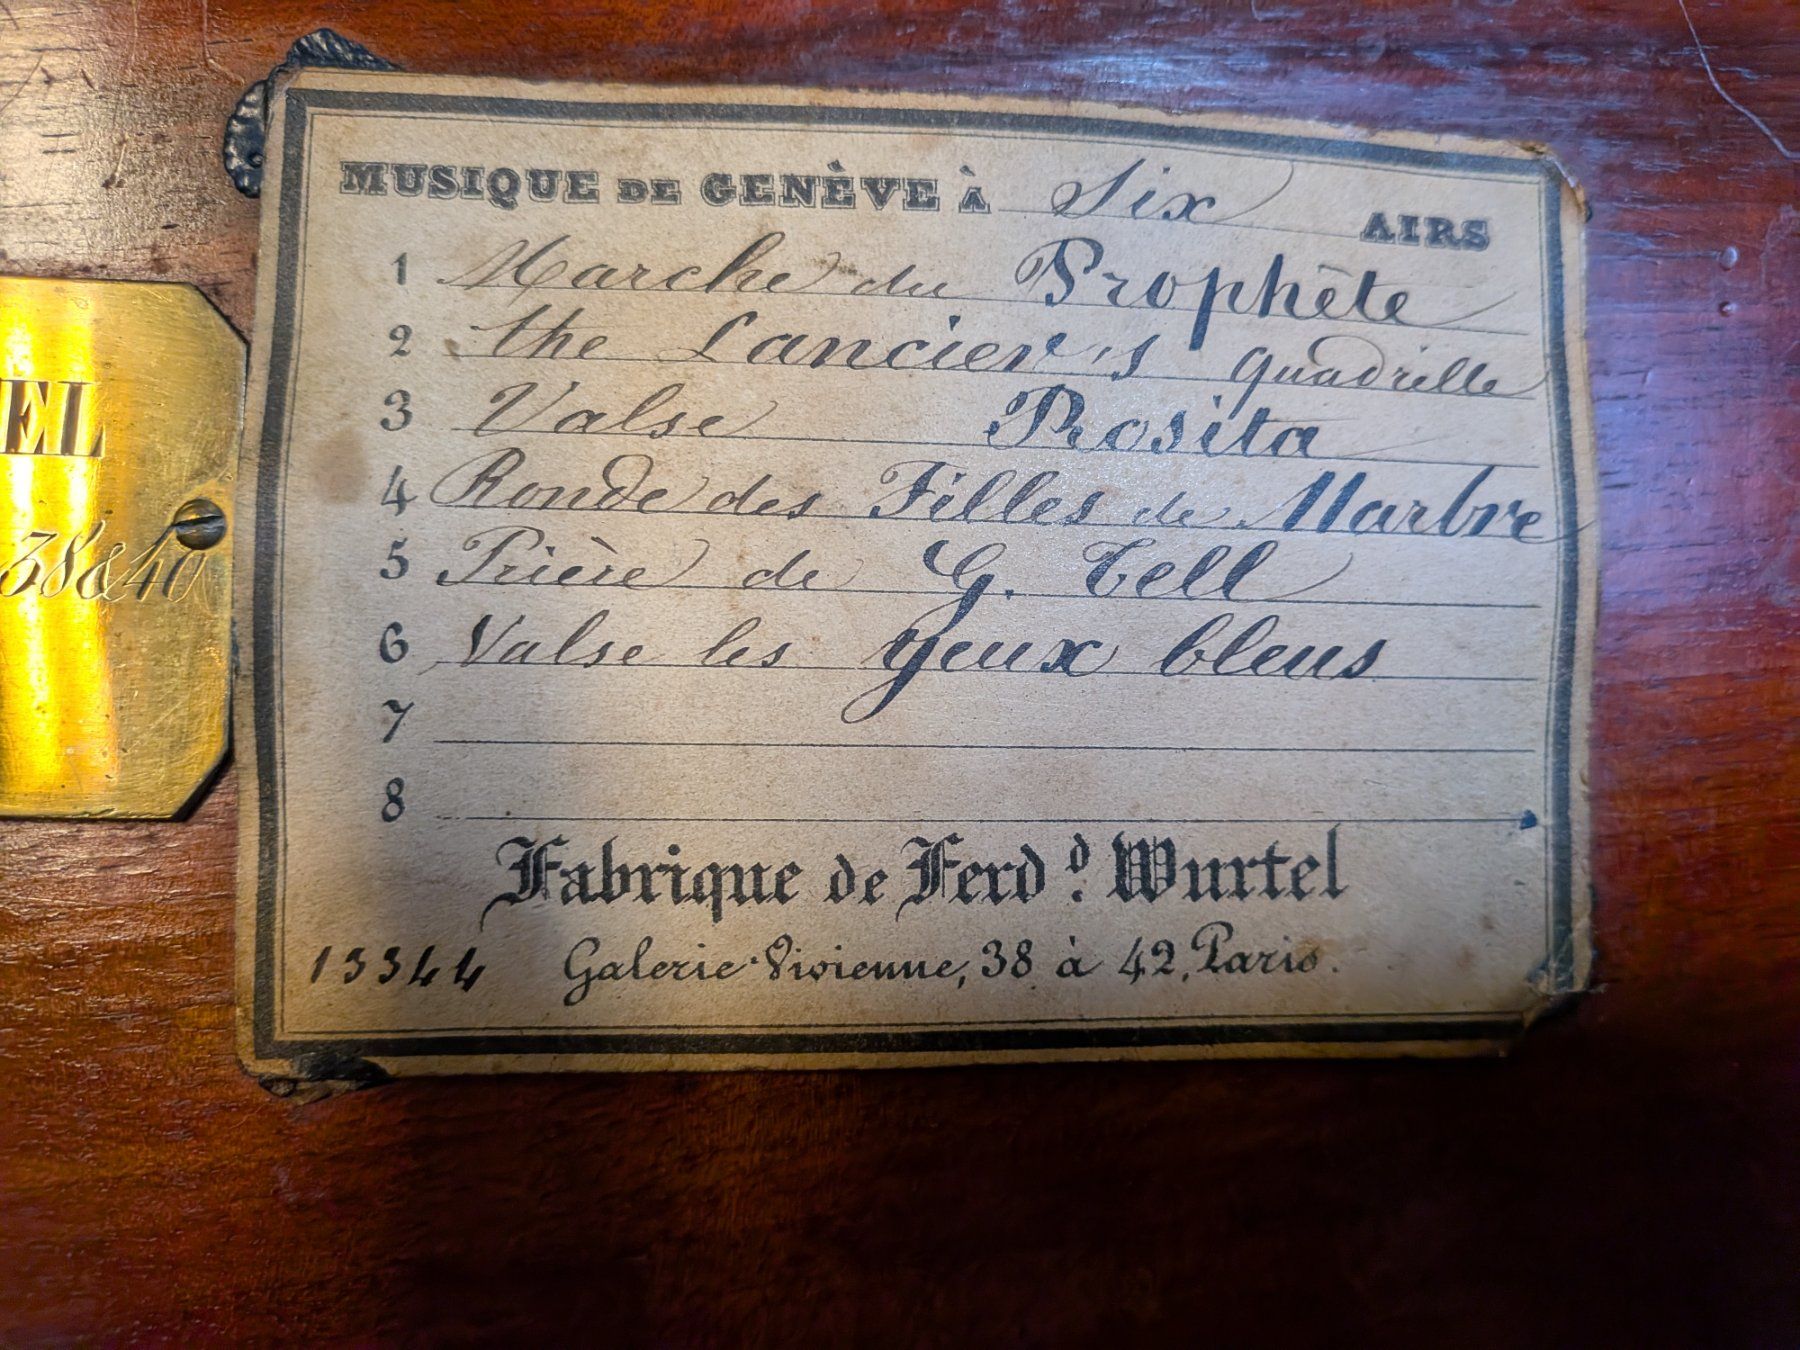 MUSIQUE DE GENÈVE À Six AIRS
1 Marche du Prophète
2 the Lancier's quadrille
3 Valse Rosita
4 Ronde des Filles de Marbre
5 Prière de G. Tell
6 Valse les yeux bleus
7
8
Fabrique de Ferd.d Wurtel
13344 Galerie Vivienne, 38 à 42, Paris.
EL
38 & 40